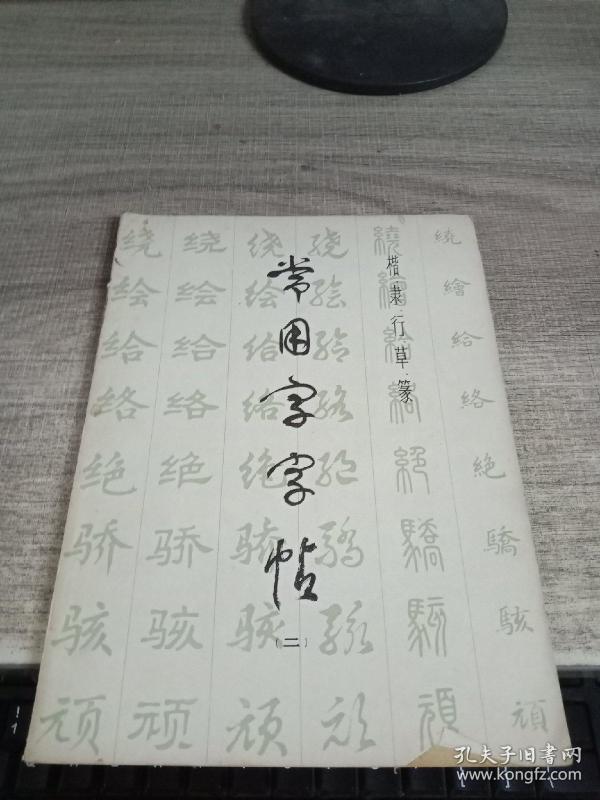 常用字字帖
(二)
楷·隶·行·草·篆
绕 绕 绕 绕 繞 繞
绘 绘 绘 绘 繪 繪
给 给 给 给 給 給
络 络 络 络 絡 絡
绝 绝 绝 绝 絕 絕
骄 骄 骄 驕 驕 驕
骇 骇 骇 骇 駭 駭
顽 顽 顽 顽 頑 頑
孔夫子旧书网
www.kongfz.com